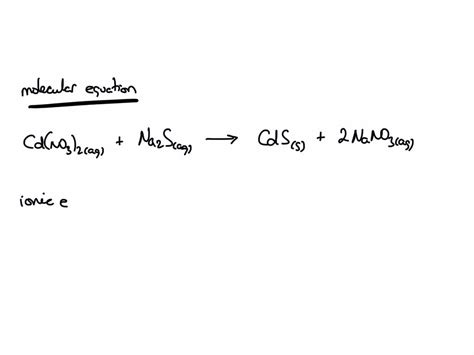 molecular equation
Cd(NO3)2(aq) + Na2S(aq) → CdS(s) + 2NaNO3(aq)
ionic e